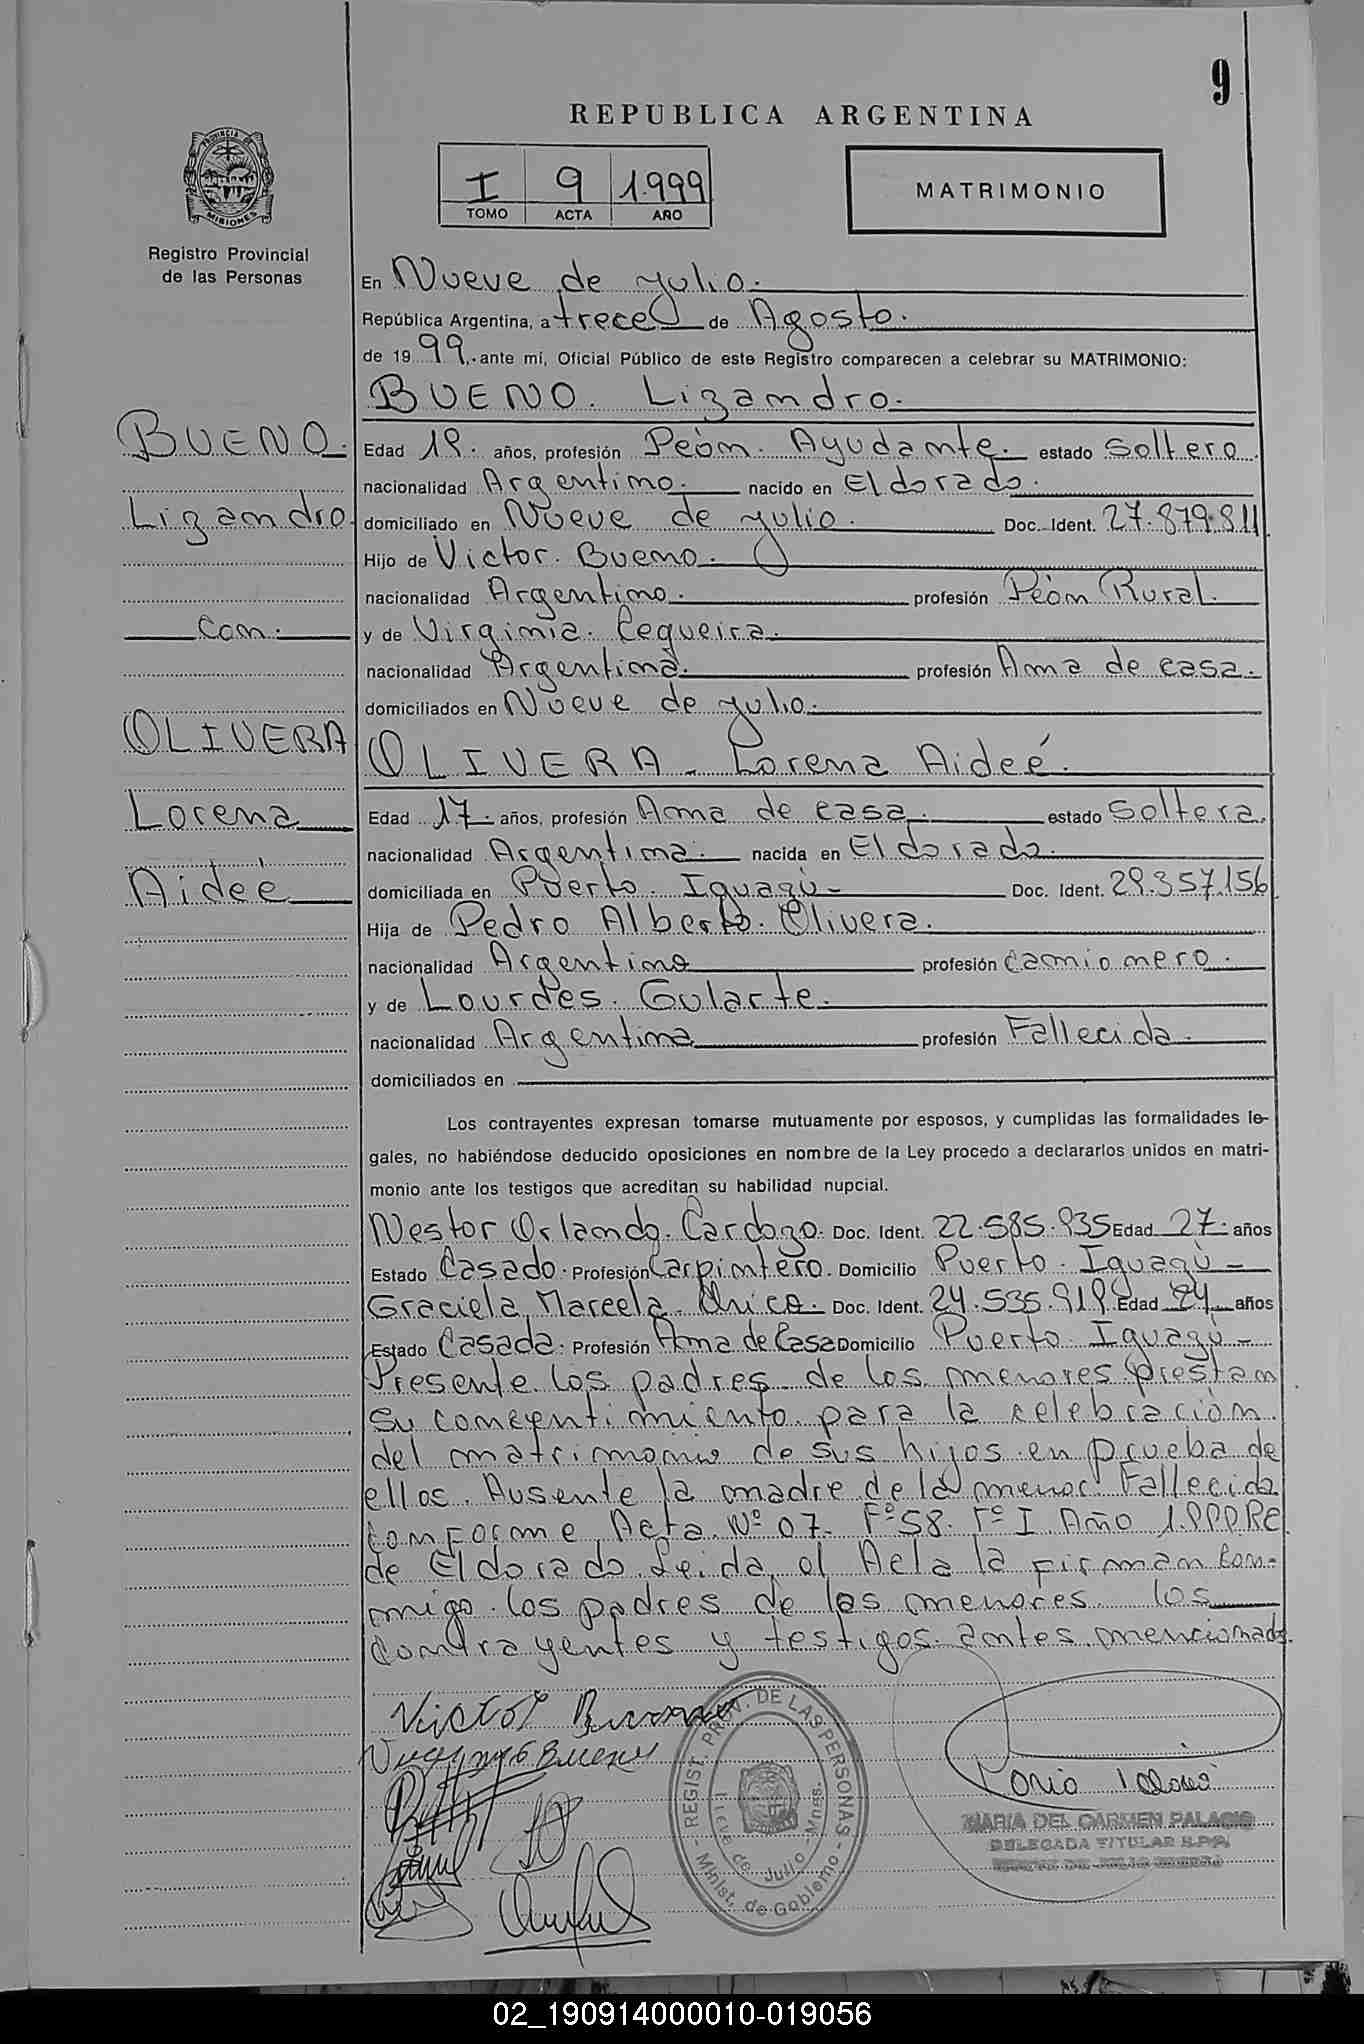 9
REPUBLICA ARGENTINA
I 9 1.999
TOMO ACTA AÑO
MATRIMONIO
PROVINCIA DE MISIONES
Registro Provincial
de las Personas
En Nueve de Julio.
República Argentina, a trece de Agosto.
de 1999. ante mí, Oficial Público de este Registro comparecen a celebrar su MATRIMONIO:
BUENO. Lizandro.
BUENO.
Edad 19. años, profesión Peón. Ayudante. estado Soltero.
nacionalidad Argentino. nacido en Eldorado.
Lizandro
domiciliado en Nueve de Julio. Doc. Ident. 27.879.811
Hijo de Victor. Bueno.
nacionalidad Argentino. profesión Peón Rural.
Con.
y de Virginia. Cequeira.
nacionalidad Argentina. profesión Ama de casa.
domiciliados en Nueve de Julio.
OLIVERA
OLIVERA - Lorena Aideé.
Lorena
Edad 17. años, profesión Ama de casa. estado Soltera.
nacionalidad Argentina. nacida en Eldorado.
Aideé
domiciliada en Puerto. Iguazú- Doc. Ident. 29.357.156
Hija de Pedro Alberto. Olivera.
nacionalidad Argentino profesión Camionero.
y de Lourdes. Gularte.
nacionalidad Argentina profesión Fallecida.
domiciliados en
Los contrayentes expresan tomarse mutuamente por esposos, y cumplidas las formalidades le-
gales, no habiéndose deducido oposiciones en nombre de la Ley procedo a declararlos unidos en matri-
monio ante los testigos que acreditan su habilidad nupcial.
Nestor Orlando. Cardozo. Doc. Ident. 22.585.935 Edad 27. años
Estado Casado. Profesión Carpintero. Domicilio Puerto. Iguazú-
Graciela Marcela. Doc. Ident. 24.535.919 Edad 24 años
Estado Casada. Profesión Ama de Casa Domicilio Puerto. Iguazú-
Presente los padres de los menores prestan
su concentimiento para la celebración.
del matrimonio de sus hijos en prueba de
ellos. Ausente la madre de la menor: Fallecida
conforme Acta Nº 07. Fº 58. Tº I Año
de Eldorado Leida el Acta la firman Con-
migo. los padres de los menores los
contrayentes y testigos antes mencionado.
Victor Bueno
REGIST. PROV. DE LAS PERSONAS
Nueve de Julio - Mnes.
Minist. de Gobierno
MARIA DEL CARMEN PALACIO
DELEGADA TITULAR R.P.P.
02_190914000010-019056